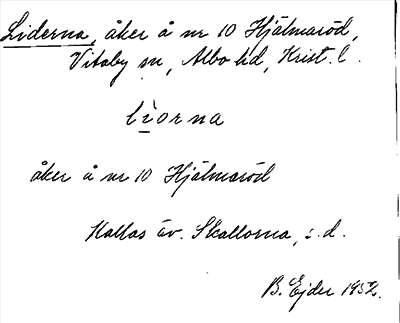 Liderna, åker å nr 10 Hjälmaröd,
Vitaby sn, Albo hd, Krist. l.
līorna
åker å nr 10 Hjälmaröd
Kallas äv. Skallorna, s. d.
B. Ejder 1952.